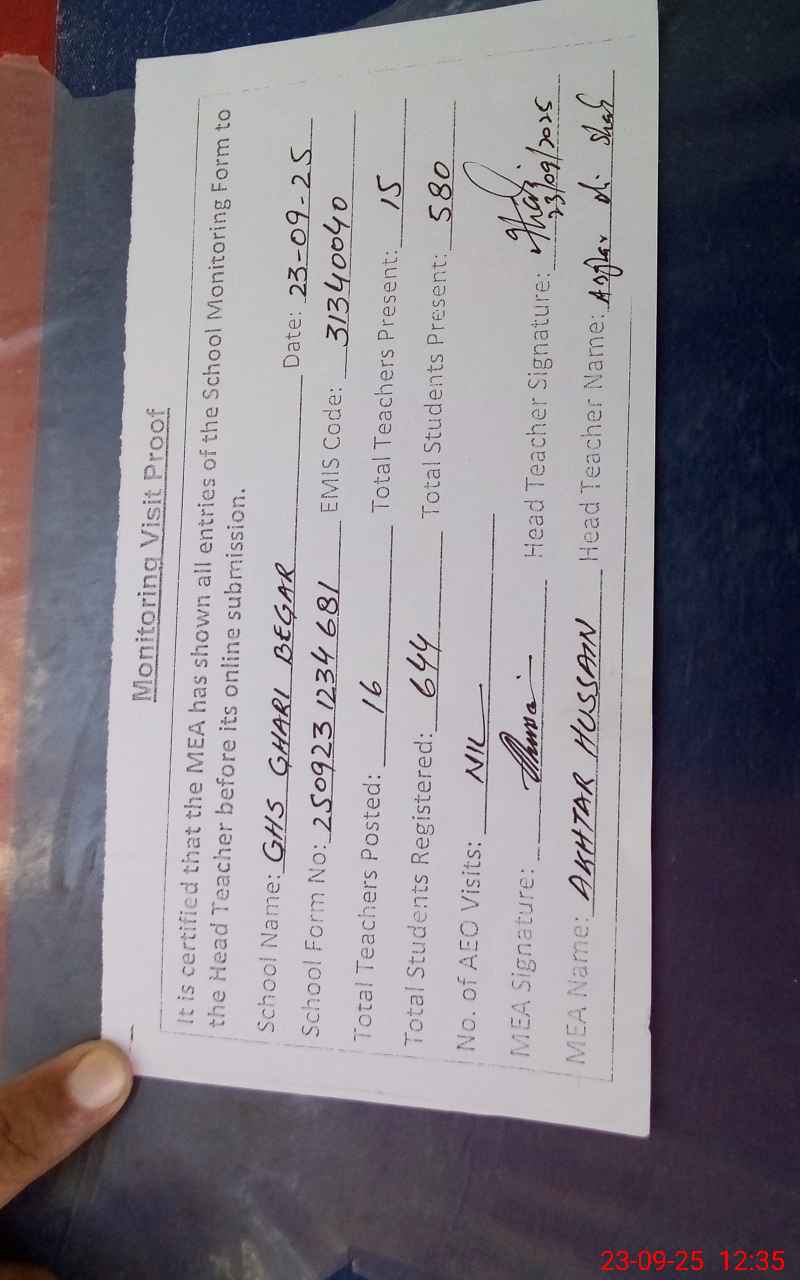 Monitoring Visit Proof
It is certified that the MEA has shown all entries of the School Monitoring Form to
the Head Teacher before its online submission.
School Name: GHS GHARI BEGAR Date: 23-09-25
School Form No: 250923 1234 681 EMIS Code: 31340040
Total Teachers Posted: 16 Total Teachers Present: 15
Total Students Registered: 644 Total Students Present: 580
No. of AEO Visits: NIL
MEA Signature: Head Teacher Signature:
23/09/2025
MEA Name: AKHTAR HUSSAIN Head Teacher Name: Shah
23-09-25 12:35